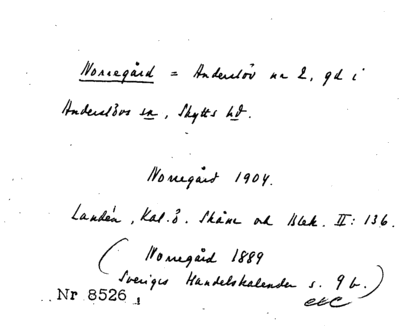 Norregård = Anderslöv nr 2, gd i
Anderslövs sn, Skytts hd.
Norregård 1904.
Landén, Kal. ö. Skåne och Blek. II: 136.
(Norregård 1889
Sveriges Handelskalender s. 9 b.)
Nr 8526